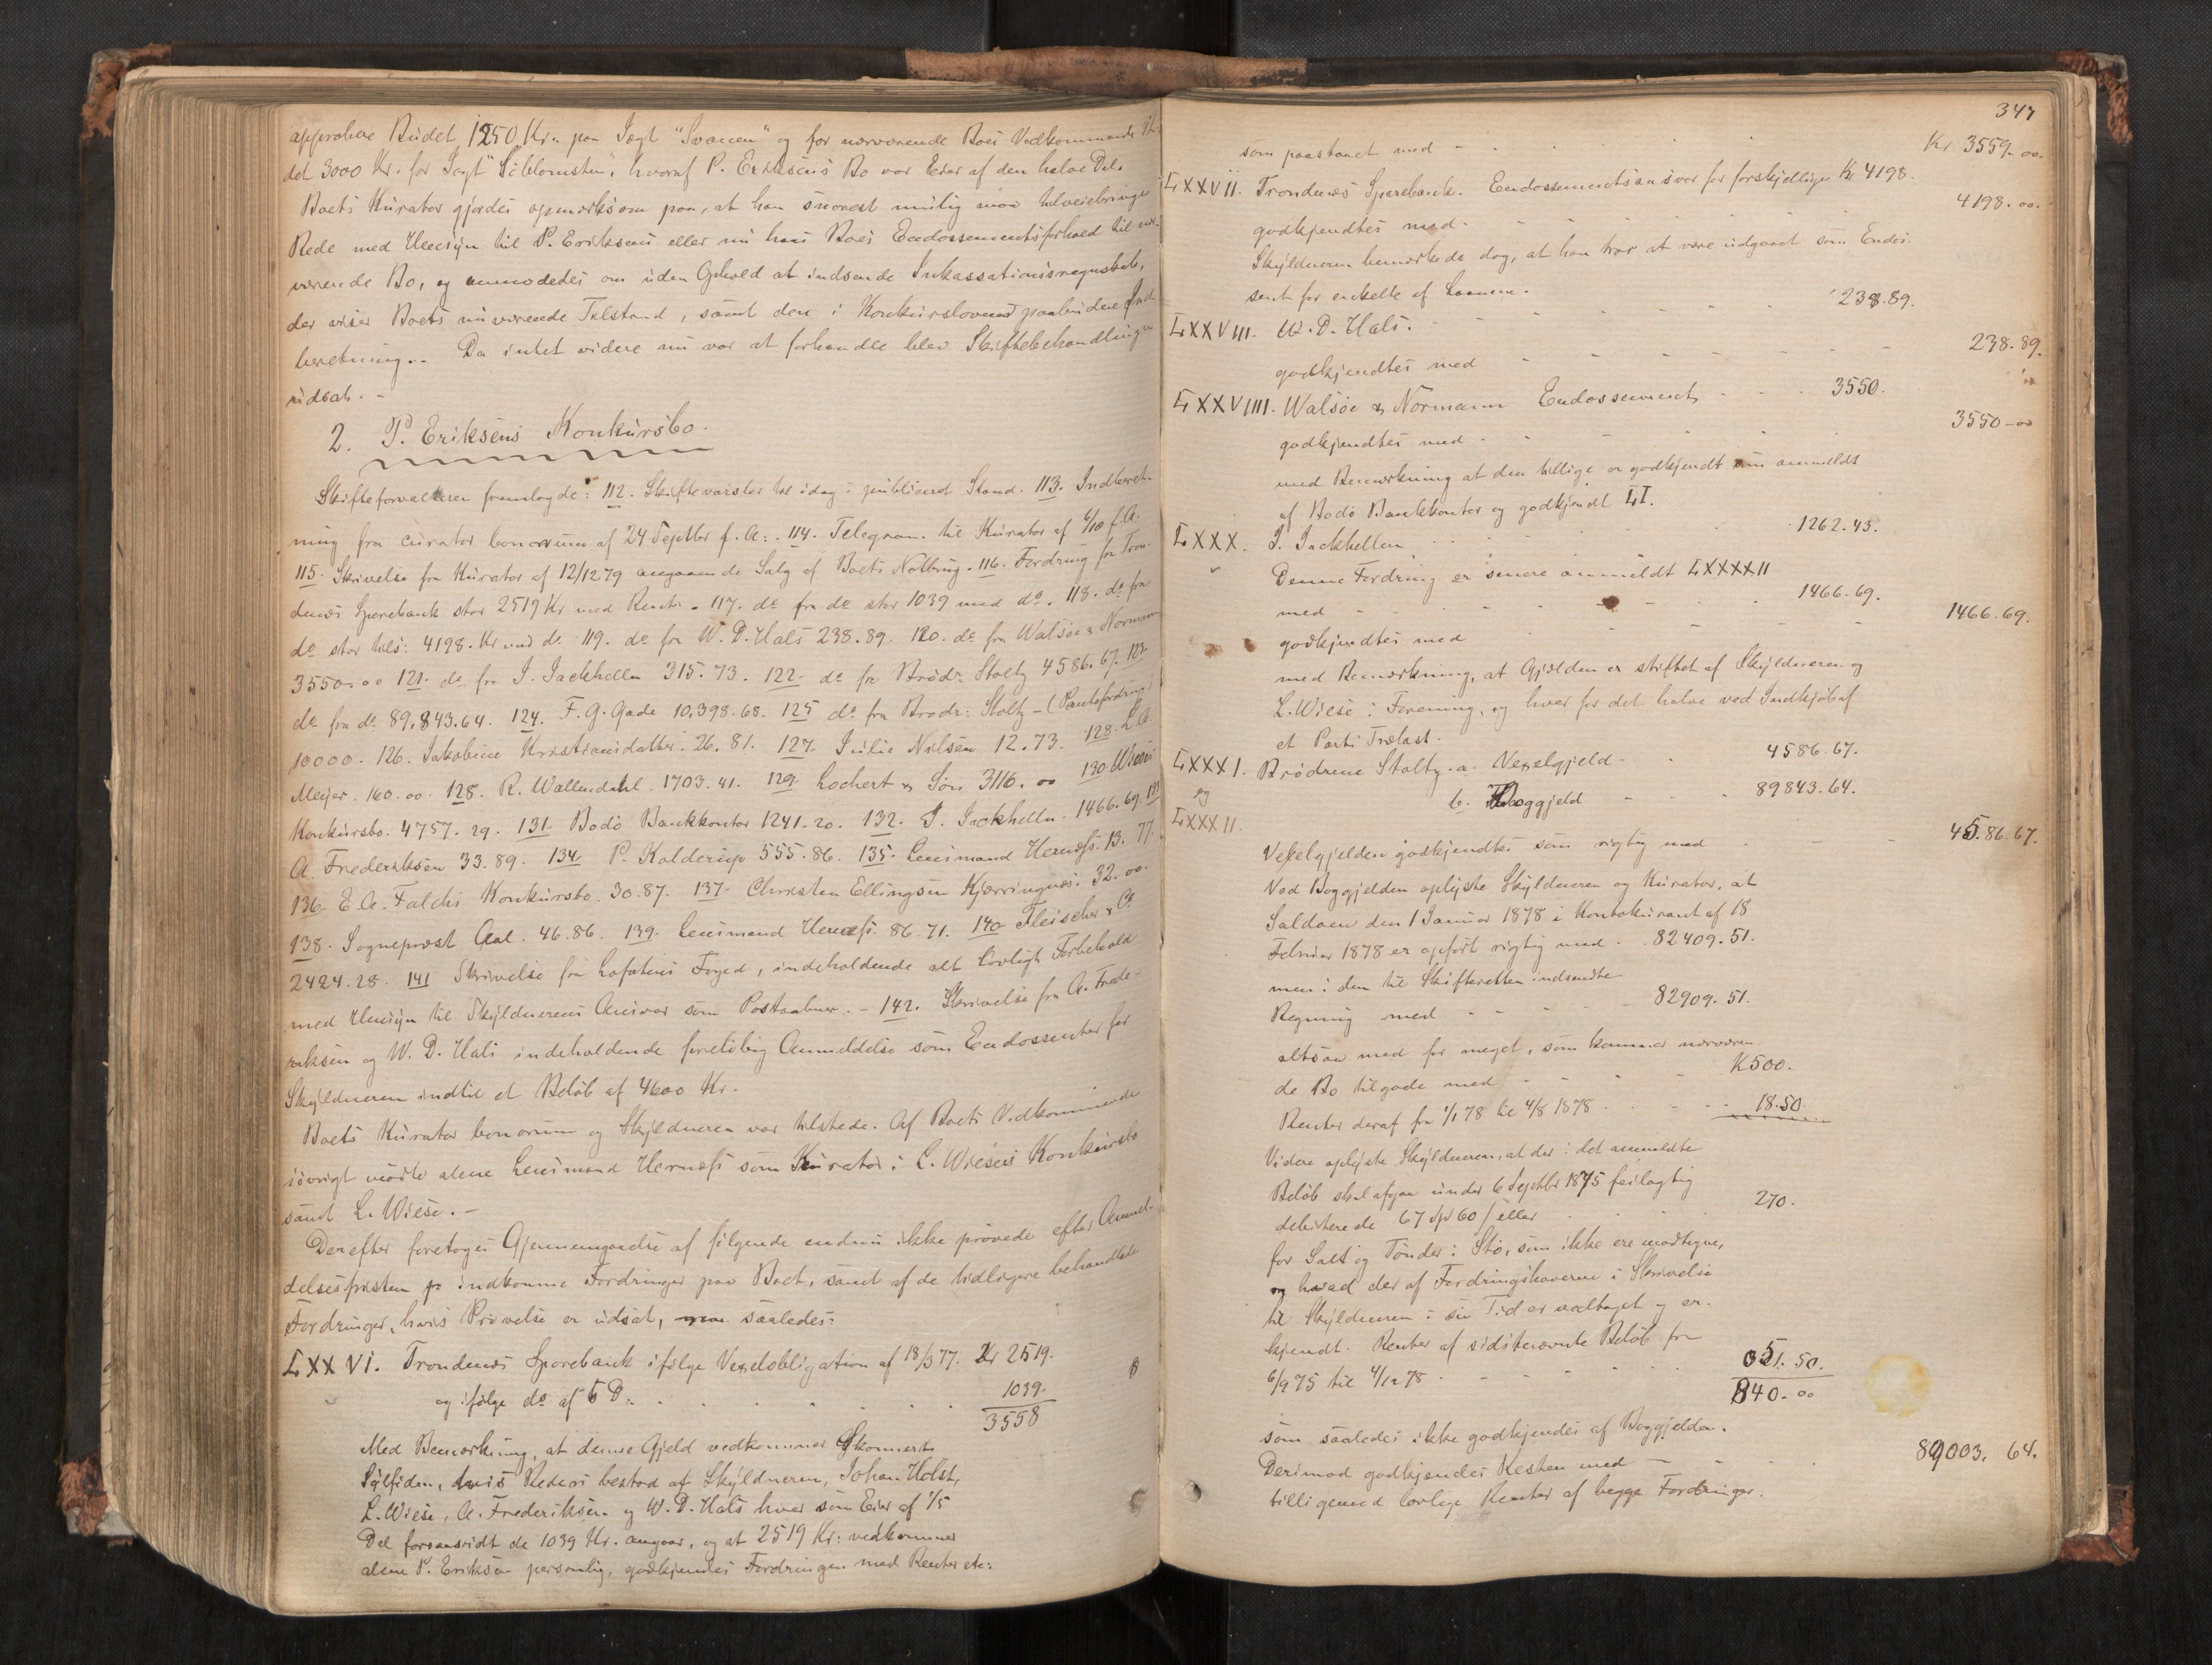 approbere Budet 1250 Kr. paa Jagt "Svanen" og for nærværende Boes Vedkommende
det 3000 Kr. for Jagt "Sølblomsten", hvoraf P. Eriksens Bo var Eier af den halve Del.
Boets Kurator gjordes opmærksom paa, at han snarest mulig maa tilveiebringe
Rede med Hensyn til P. Eriksens eller nu hans Boes Endossementsforhold til nær-
værende Bo, og anmodedes om uden Ophold at indsende Inkassationsregnskab,
der viser Boets nuværende Tilstand, samt den i Konkursloven paabudne Ind-
beretning. Da intet videre nu var at forhandle blev Skiftebehandlingen
udsat. -
2. P. Eriksens Konkursbo.
Skifteforvalteren fremlagde: 112. Skiftevarsler til idag i publiceret Stand. 113. Indberet-
ning fra curator bonorum af 24 Septbr f. A. 114. Telegram til Kurator af 6/10 f. A.
115. Skrivelse fra Kurator af 12/12 79 angaaende Salg af Boets Notbrug. 116. Fordring fra Tron-
denæs Sparebank stor 2519 Kr med Renter. 117. do fra do stor 1039 med do. 118. do fra
do stor tils: 4198. Kr med do 119. do fra W. D. Hals 238.89. 120. do fra Walsøe & Normann
3550.00 121. do fra J. Jackhelln 315.73. 122. do fra Brødr. Stoltz 4586.67. 123.
do fra do 89,843.64. 124. F. G. Gade 10,398.68. 125 do fra Brødr: Stoltz - (Pantefordring)
10000. 126. Jakobine Kristiansdatter. 26.81. 127. Julie Nilsen 12.73. 128. L. A.
Meyer. 160.00. 128. R. Wallendahl. 1703.41. 129. Lochert & Søn 3116.00 130 Wieses
Konkursbo. 4757.29. 131. Bodø Bankkontor 1241.20. 132. J. Jackhelln. 1466.69. 133
A. Frederiksen 33.89. 134. P. Kolderup 555.86. 135. Lensmand Hernæss. 13.77.
136. E. A. Falchs Konkursbo. 30.87. 137. Christen Ellingsen Kjærringnes. 32.00.
138. Sogneprest Aal. 46.86. 139. Lensmand Hernæss. 86.71. 140 Fleischer & Co.
2424.28. 141 Skrivelse fra Lofotens Foged, indeholdende alt lovligt Forbehold
med Hensyn til Skyldnerens Ansvar som Postaabner. - 142. Skrivelse fra A. Frede-
riksen og W. D. Hals indeholdende foreløbig Anmeldelse som Endossenter for
Skyldneren indtil et Beløb af 4600 Kr.
Boets Kurator bonorum og Skyldneren var tilstede. Af Boets Vedkommende
iøvrigt mødte alene Lensmand Hernæss som Kurator i L. Wieses Konkursbo
samt L. Wiese. -
Derefter foretoges Gjennemgaaelse af følgende endnu ikke prøvede efter Anmel-
delsesfristen indkomne Fordringer paa Boet, samt af de tidligere behandlede
Fordringer, hvis Prøvelse er udsat, saaledes:
LXXVI. Trondenæs Sparebank ifølge Vexelobligation af 18/3 77. Kr 2519.
og ifølge do af S D. . . . . . 1039.
3558
Med Bemærkning, at denne Gjeld vedkommer Skonnert
Sylfiden, hvis Rederi bestod af Skyldneren, Johan Holst,
L. Wiese, A. Frederiksen og W. D. Hals hver som Eier af 1/5
Del forsaavidt de 1039 Kr. angaar, og at 2519 Kr: vedkommer
alene P. Eriksen personlig, godkjendes Fordringen med Renter etc:
347
som paastaaet med - - - Kr 3559.00.
LXXVII. Trondenæs Sparebank. Endossementsansvar for forskjellige Kr 4198.
godkjendtes med - - - 4198.00.
Skyldneren bemærkede dog, at han tror at være udgaaet som Endos-
sent for enkelte af Laanene.
LXXVIII. W. D. Hals. - - - 238.89.
godkjendtes med - - - 238.89.
LXXVIIII. Walsøe & Normann Endossement - - 3550.
godkjendtes med - - - 3550-00
med Bemærkning at den tillige er godkjendt som anmeldt
af Bodø Bankkontor og godkjendt LI.
LXXX. J. Jackhelln - - - 1262.43.
Denne Fordring er senere anmeldt LXXXXII
med - - - 1466.69.
godkjendtes med - - - 1466.69.
med Bemærkning, at Gjælden er stiftet af Skyldneren og
L. Wiese i Forening, og hver for det halve ved Indkjøb af
et Parti Trælast.
LXXXI. Brødrene Stoltz. a. Vexelgjeld - 4586.67.
og b. Boggjeld - - - 89843.64.
LXXXII.
Vexelgjelden godkjendtes som rigtig med - - - 4586.67.
Ved Boggjelden oplyste Skyldneren og Kurator, at
Saldoen den 1 Januar 1878 i Kontokurant af 18
Februar 1878 er opført rigtig med . 82409.51.
men i den til Skifteretten indsendte
Regning med - - - 82909.51.
altsaa med for meget, som kommer nærværen-
de Bo tilgode med - - - K 500.
Renter deraf fra 1/1 78 til 4/8 1878 . - - 18.50.
Videre oplyste Skyldneren, at der i det anmeldte
Beløb skal afgaa under 6 Septbr 1875 feilagtig
debiterede 67 Spd 60 s eller . . . . 270.
for Salt og Tønder i Stø, som ikke ere modtagne,
og hvad der af Fordringshaverne i Skrivelse
til Skyldneren i sin Tid er vedtaget og er-
kjendt. Renter af sidstnævnte Beløb fra
6/9 75 til 4/12 78 . - - - 51.50.
840.00
som saaledes ikke godkjendes af Boggjelden.
Derimod godkjendes Resten med - - - 89003.64.
tilligemed lovlige Renter af begge Fordringer.